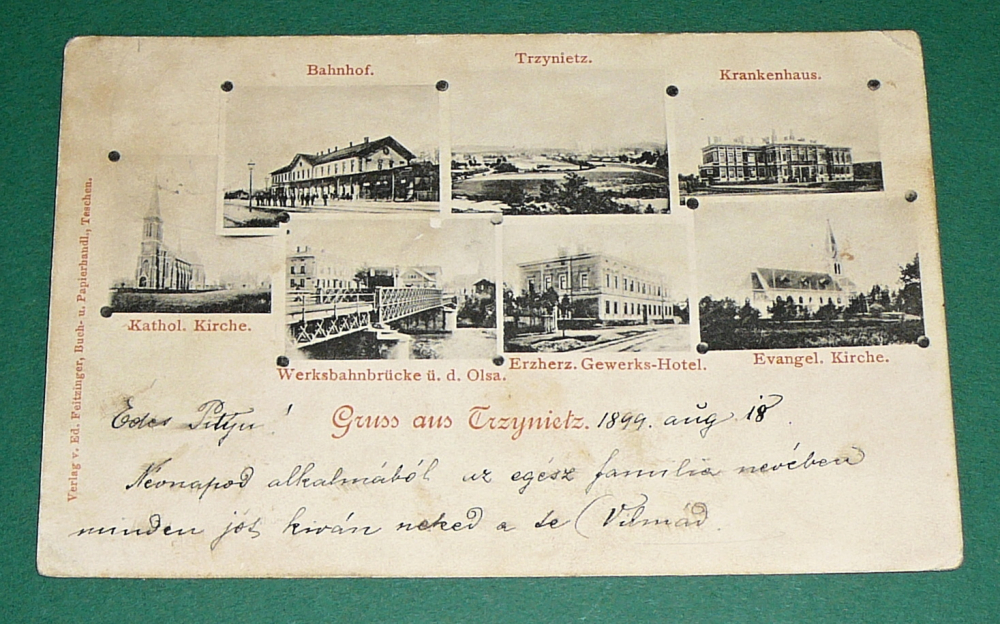 Trzynietz.
Bahnhof.
Krankenhaus.
Kathol. Kirche.
Werksbahnbrücke ü. d. Olsa.
Erzherz. Gewerks-Hotel.
Evangel. Kirche.
Verlag v. Ed. Feitzinger, Buch- u. Papierhandl., Teschen.
Gruss aus Trzynietz. 1899. aug. 18.
Édes !
Nevnapod alkalmából az egész familia nevében
minden jót kíván neked a te Vilmád.